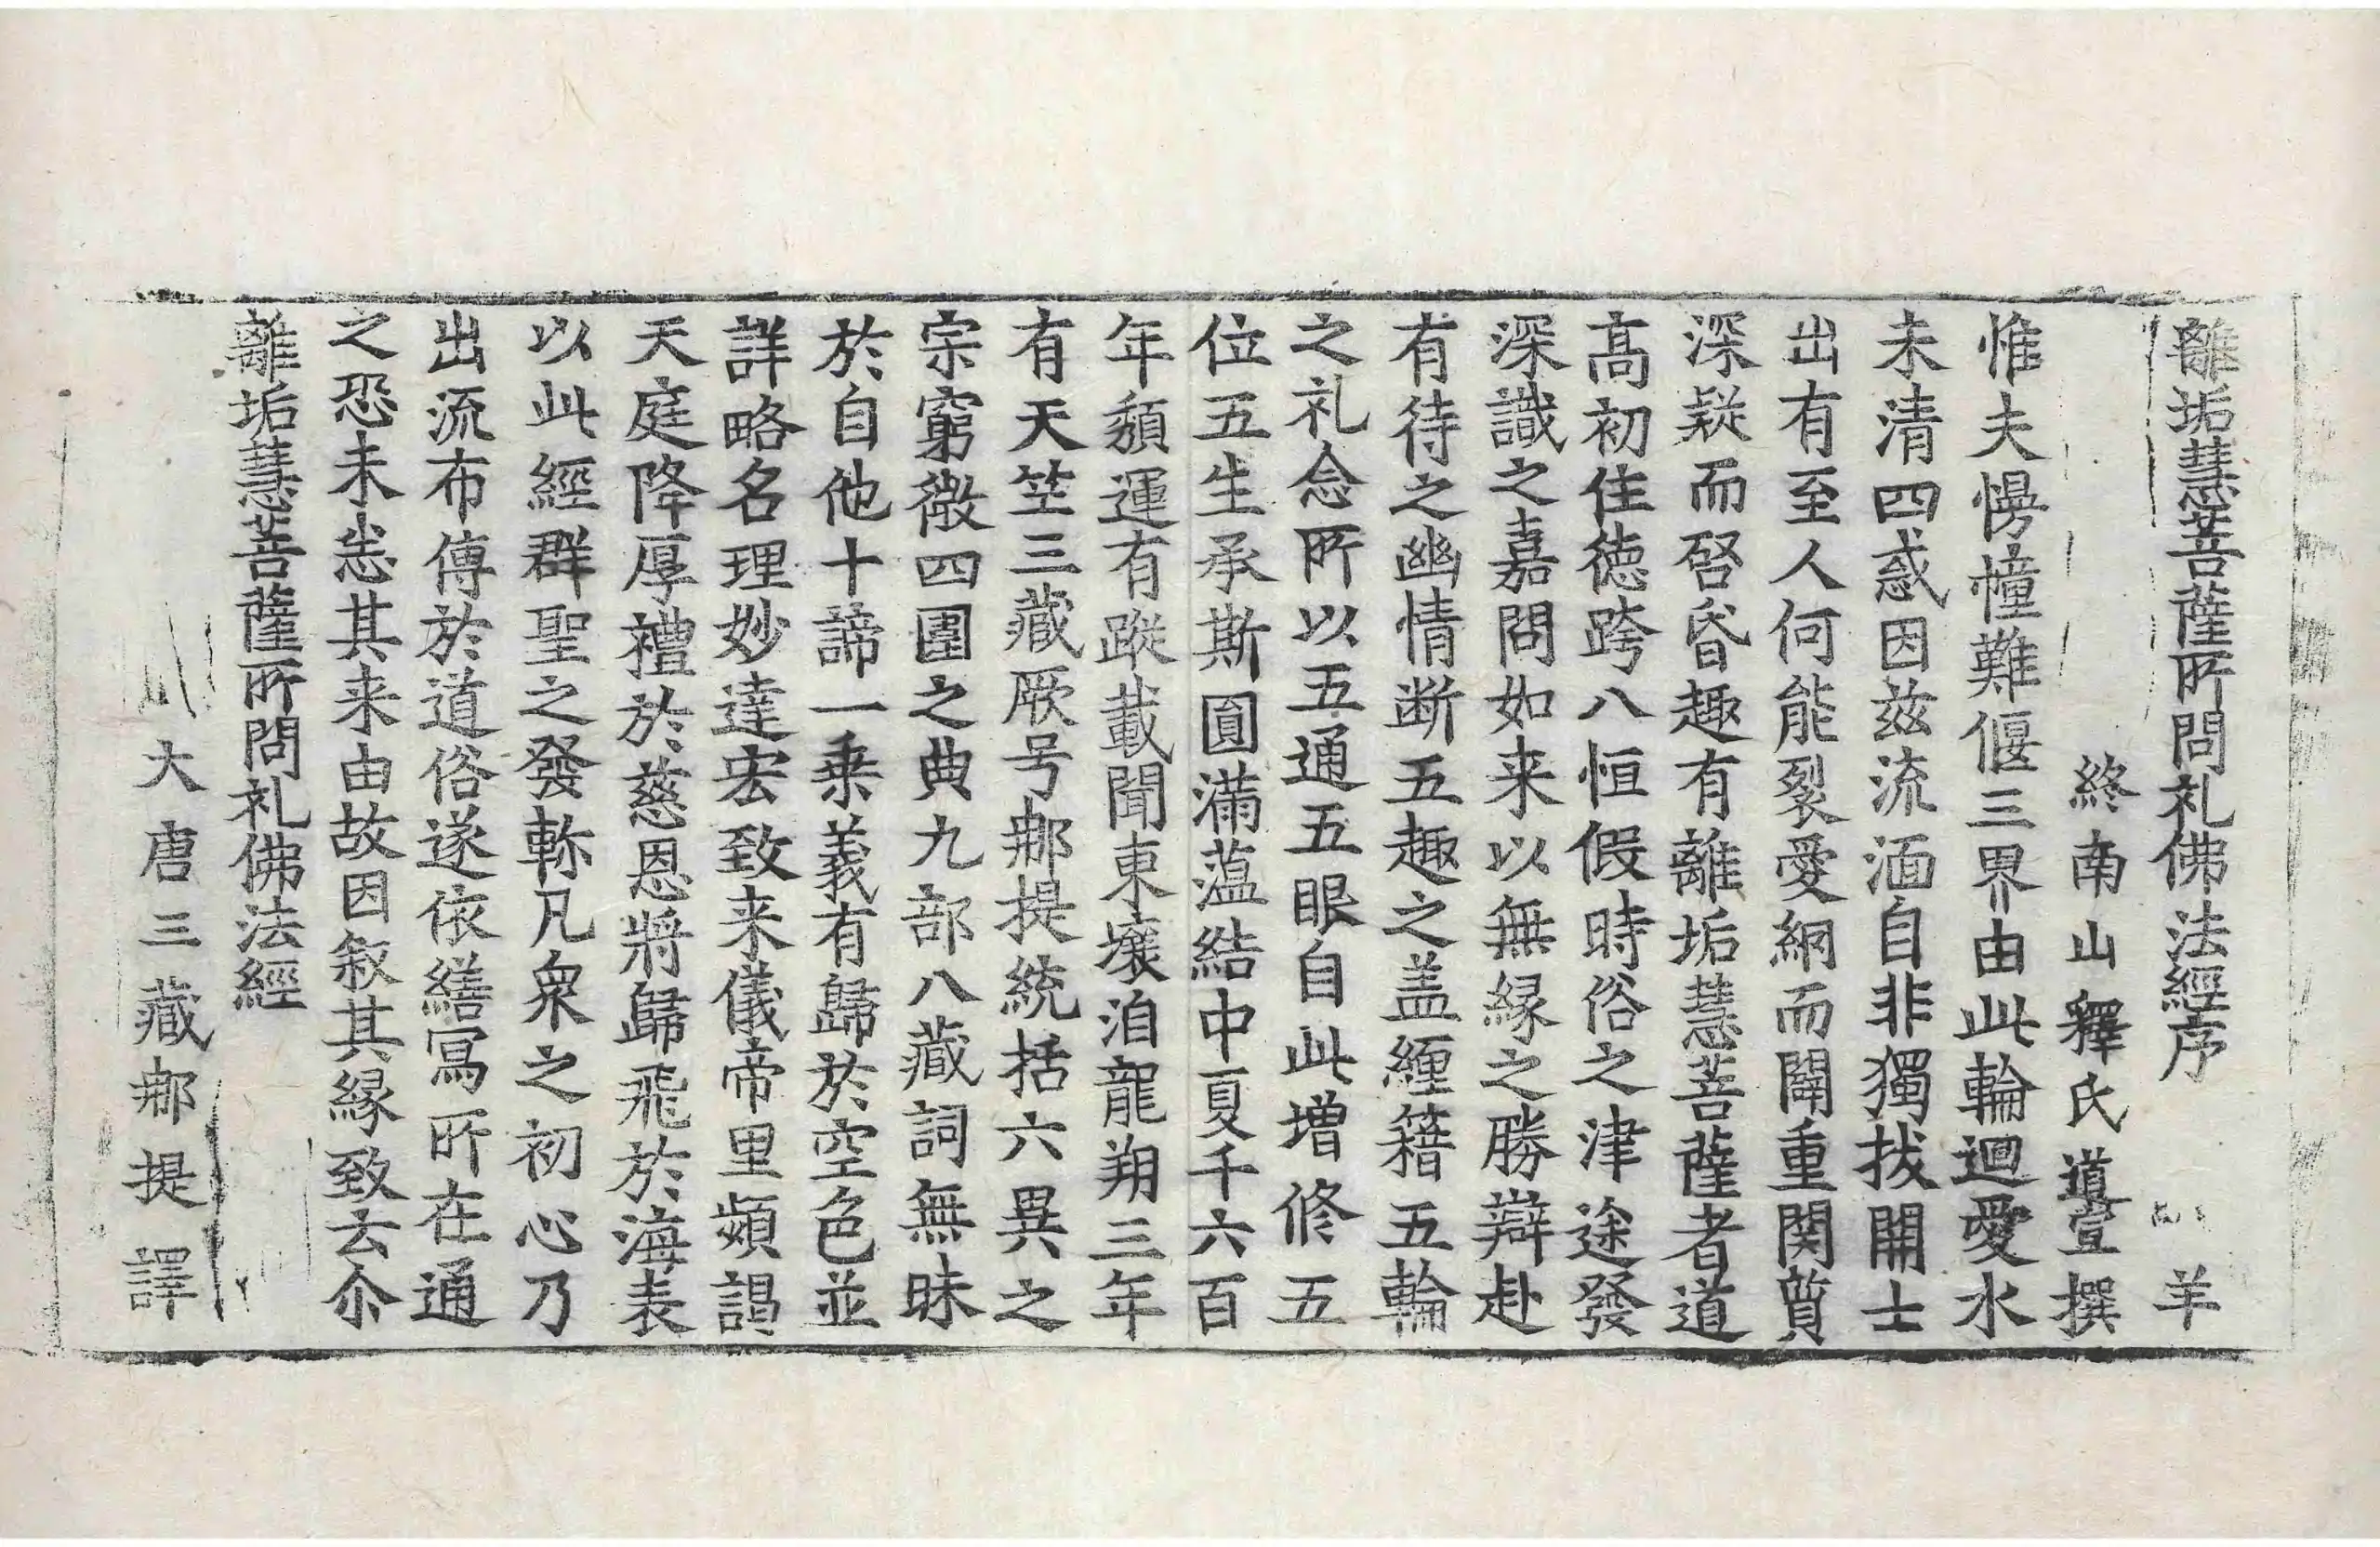 離垢慧菩薩所問礼佛法經序 羊
終南山釋氏道宣撰
惟夫慢幢難偃三界由此輪迴愛水
未清四惑因兹流湎自非獨拔開士
出有至人何能裂愛網而闢重関質
深疑而啓昏趣有離垢慧菩薩者道
高初住徳跨八恒假時俗之津途發
深識之嘉問如来以無緣之勝辯赴
有待之幽情断五趣之盖纏籍五輪
之礼念所以五通五眼自此増修五
位五生承斯圓滿薀結中夏千六百
年頽運有蹤載聞東壤洎龍朔三年
有天笁三藏厥号郍提統括六異之
宗窮微四圍之典九部八藏詞無昧
於自他十諦一乗義有歸於空色並
詳略名理妙達宏致来儀帝里頻謁
天庭降厚禮於慈恩將歸飛於海表
以此經群聖之發軫凡衆之初心乃
出流布傳於道俗遂依繕寫所在通
之恐未悉其来由故因叙其緣致云尒
離垢慧菩薩所問礼佛法經
大唐三藏郍提 譯